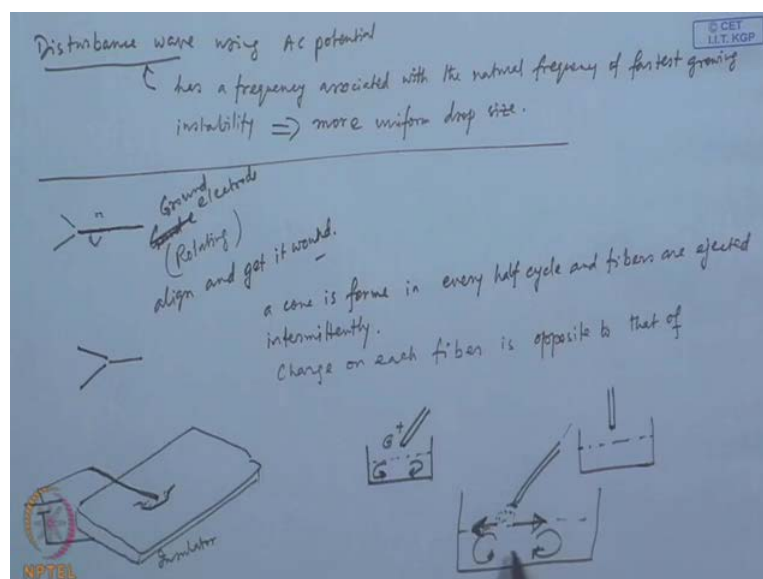 © CET
I.I.T. KGP
Disturbance wave using AC potential
has a frequency associated with the natural frequency of fastest growing
instability ⇒ more uniform drop size.
n
Ground
electrode
(Rotating)
align and get it wound.
a cone is forme in every half cycle and fibers are ejected
intermittently.
Charge on each fiber is opposite to that of
G+
Insulator
NPTEL